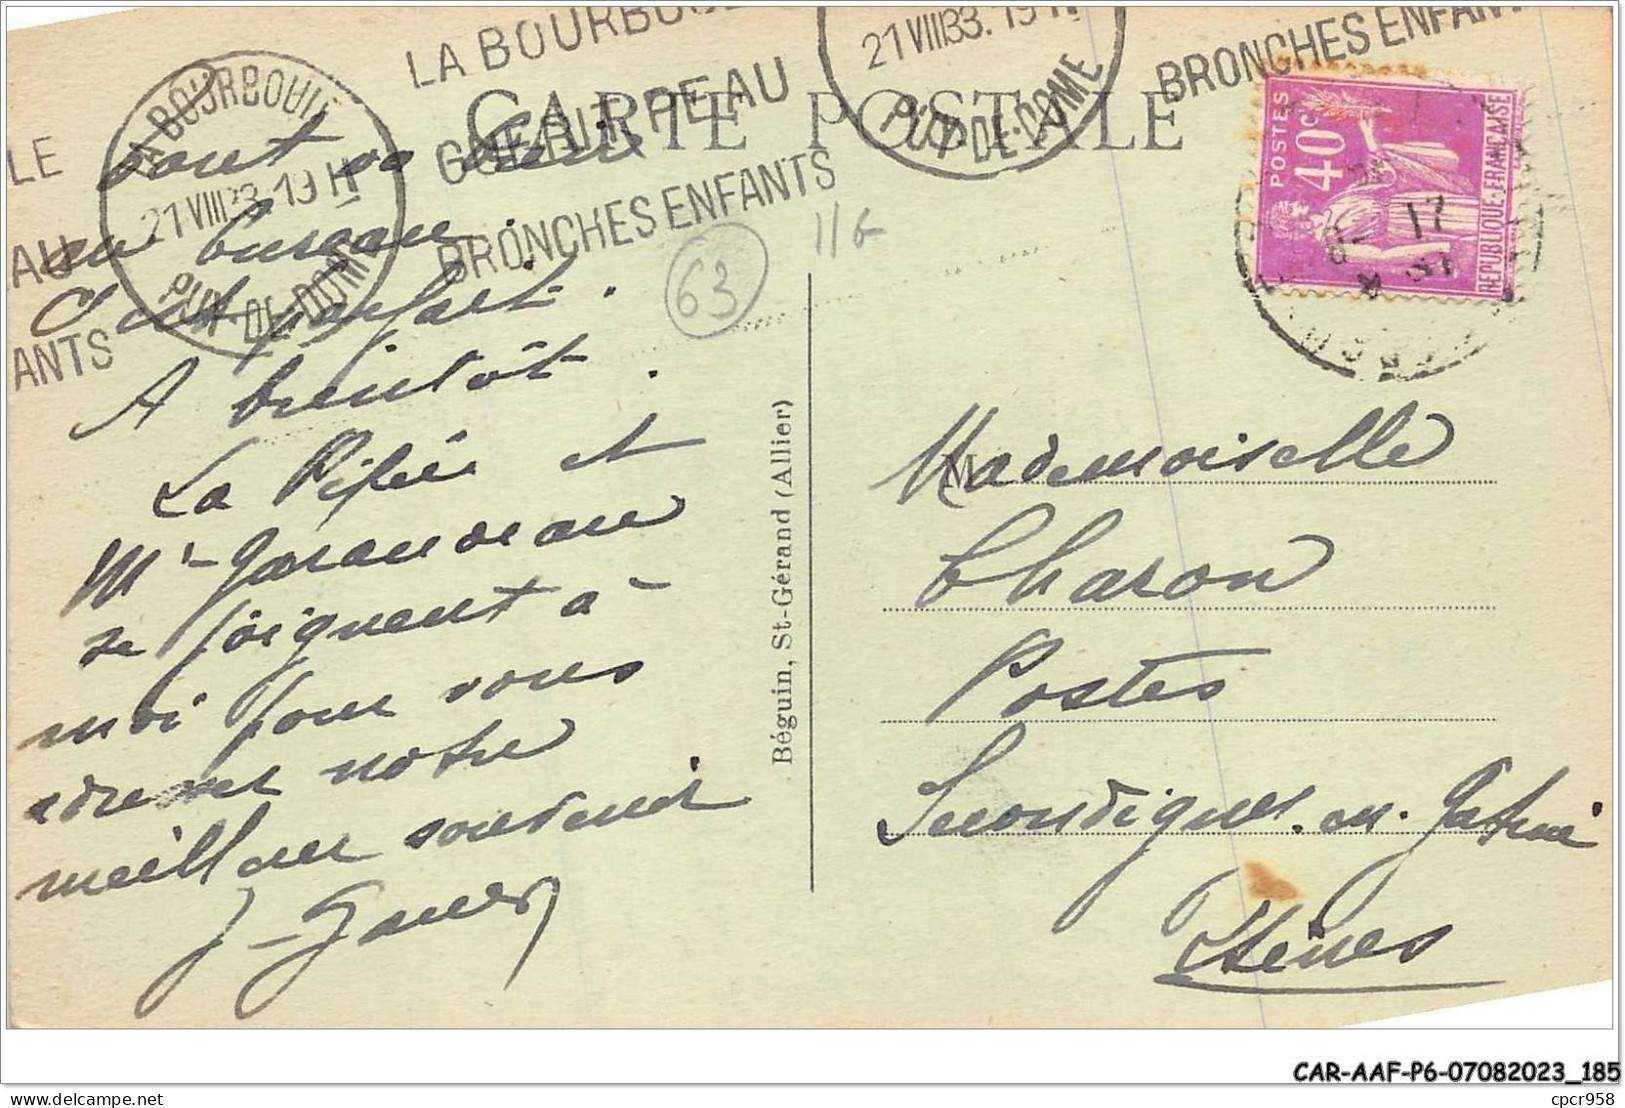 LA BOURBOULE
GUERIT PEAU
BRONCHES ENFANTS
LA BOURBOULE
21 VIII 33. 19 H
PUY-DE-DOME
21 VIII 33. 19 H
PUY-DE-DOME
BRONCHES ENFANT
LE
AU
ANTS
CARTE POSTALE
POSTES
40c
REPUBLIQUE·FRANÇAISE
17
63
116
vont
au bureau.
C'est parfait.
A bientôt.
La Pépée et
Mr Garandeau
se joignent à
moi pour vous
adresser notre
meilleur souvenir
Béguin, St-Gérand (Allier)
M
Mademoiselle
Charon
Postes
Secondigné en Gatine
2 Sèvres
CAR-AAF-P6-07082023_185
cpcr958